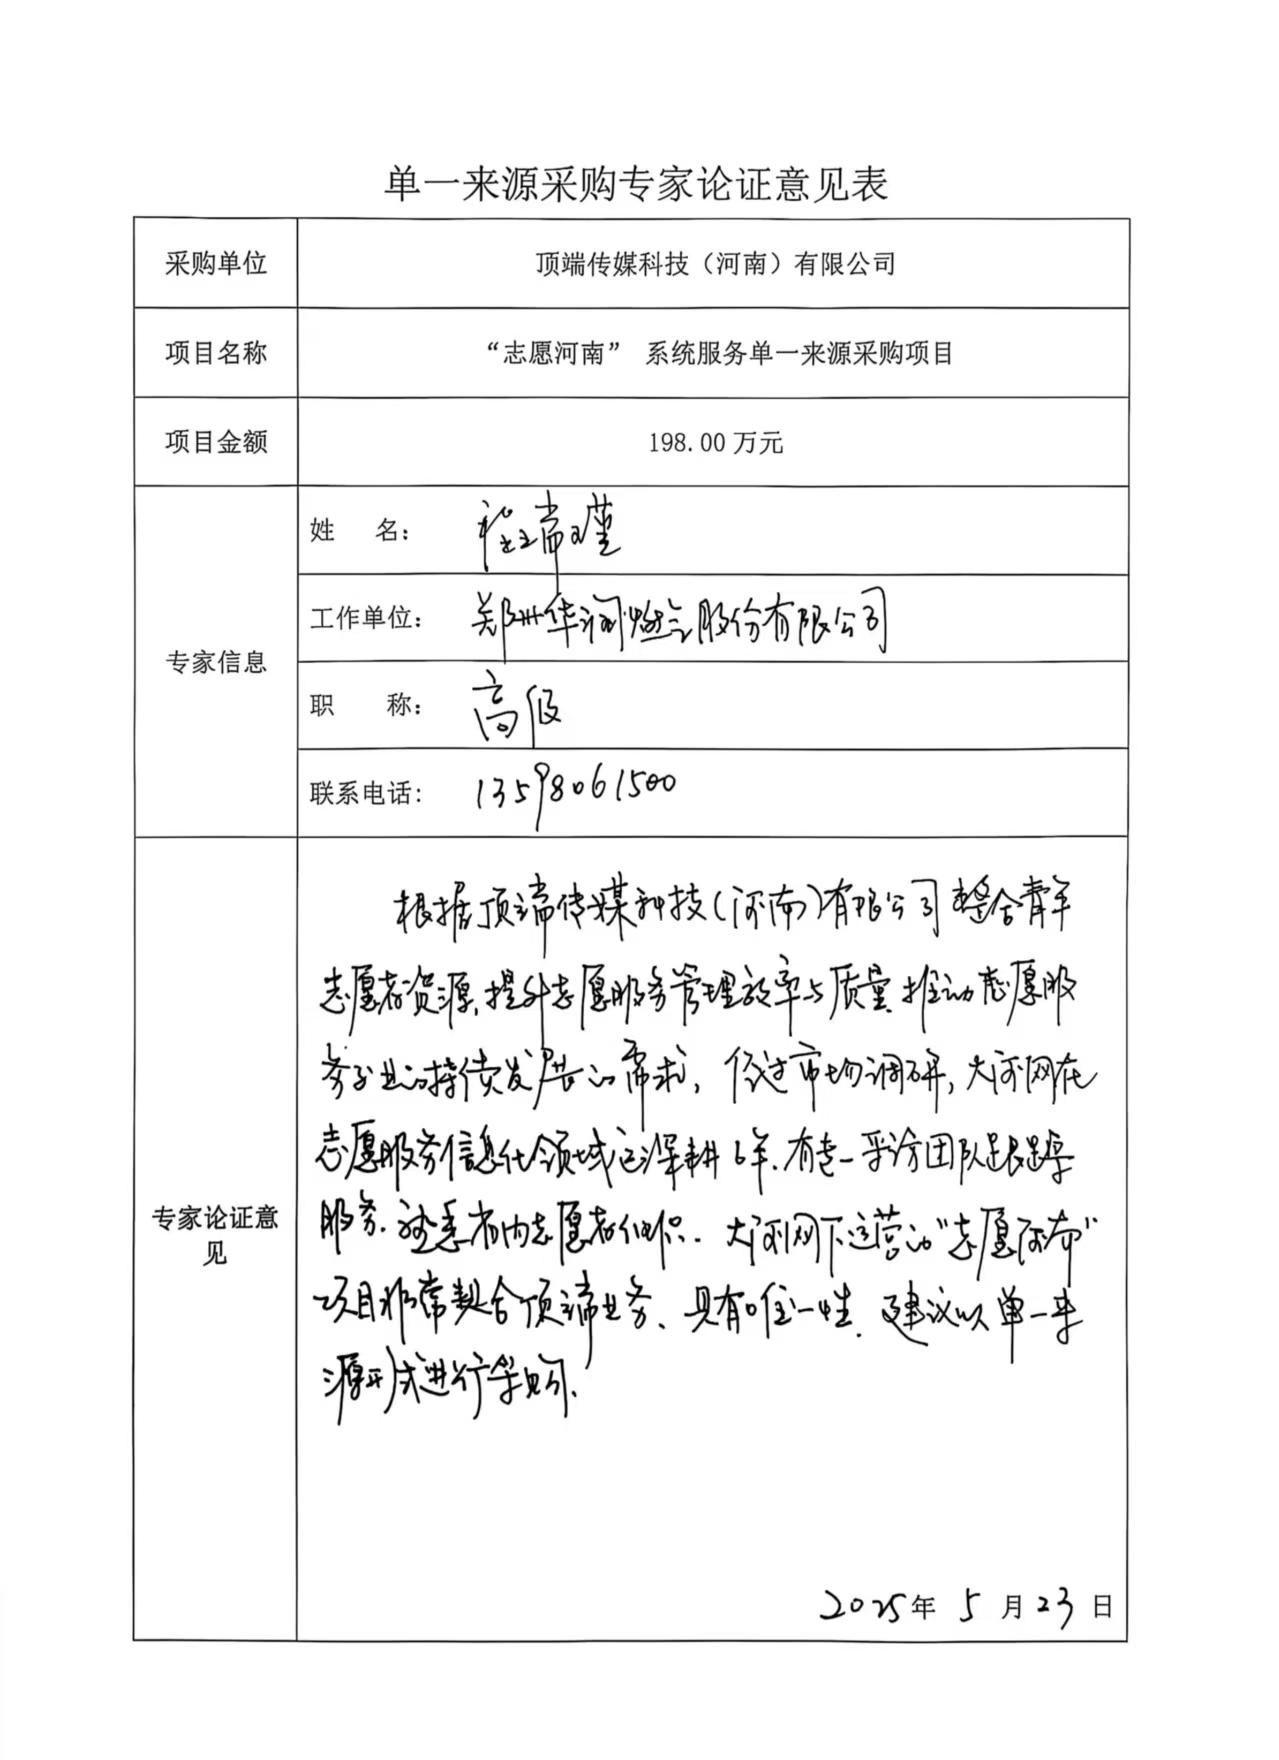 单一来源采购专家论证意见表
采购单位
顶端传媒科技（河南）有限公司
项目名称
“志愿河南” 系统服务单一来源采购项目
项目金额
198.00 万元
专家信息
姓 名： 程瑞瑾
工作单位： 郑州华润燃气股份有限公司
职 称： 高级
联系电话： 13598061500
专家论证意见
根据顶端传媒科技(河南)有限公司整合青年
志愿者资源,提升志愿服务管理效率与质量,推动志愿服
务事业的持续发展的需求,经过市场调研,大河网在
志愿服务信息化领域已深耕6年.有专一采访团队跟踪
服务.熟悉省内志愿者.大河网下运营的“志愿河南”
项目非常契合顶端业务、具有唯一性.建议以单一来
源形式进行采购.
2025年 5 月 23 日